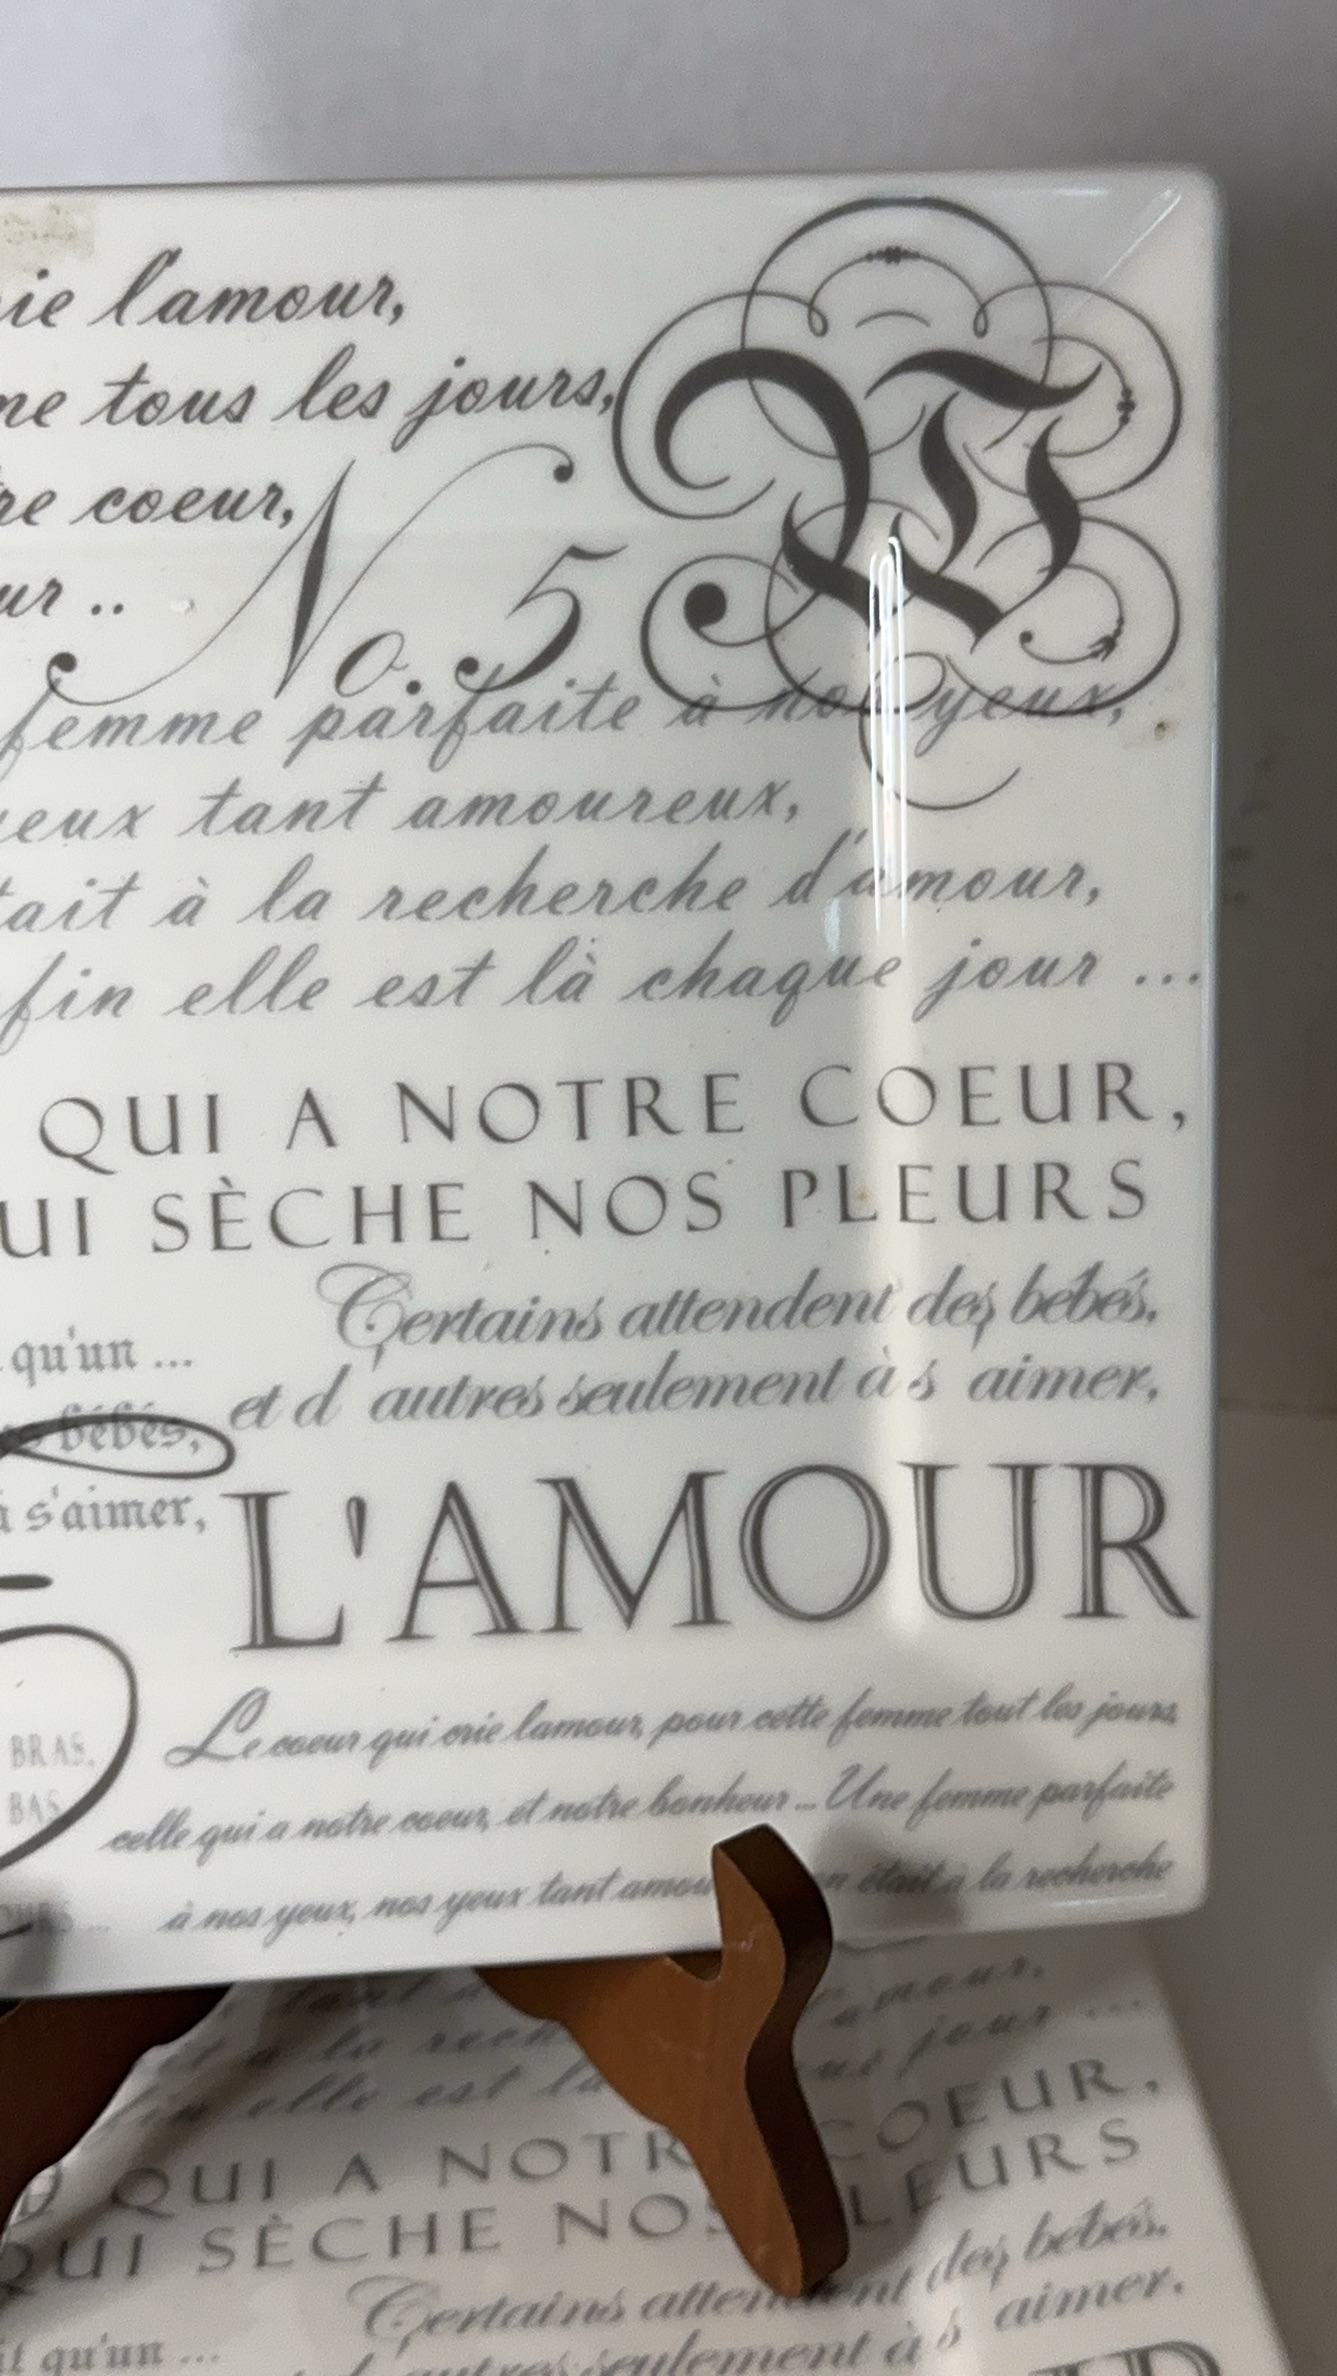 l'amour,
tous les jours,
coeur,
No. 5
W
femme parfaite à nos yeux,
tant amoureux,
à la recherche d'amour,
elle est là chaque jour ...
QUI A NOTRE COEUR,
SÈCHE NOS PLEURS
Certains attendent des bébés.
et d autres seulement à s aimer,
qu'un ...
bébés,
à s'aimer,
L'AMOUR
5
BRAS,
BAS
Le coeur qui crie lamour, pour cette femme tout les jours,
celle qui a notre coeur, et notre bonheur ... Une femme parfaite
à nos yeux, nos yeux tant était à la recherche
tant
à la
amour.
elle est là jour ...
QUI A COEUR,
QUI SÈCHE NOS PLEURS
Certains des bébés.
qu'un ...
seulement à s aimer.